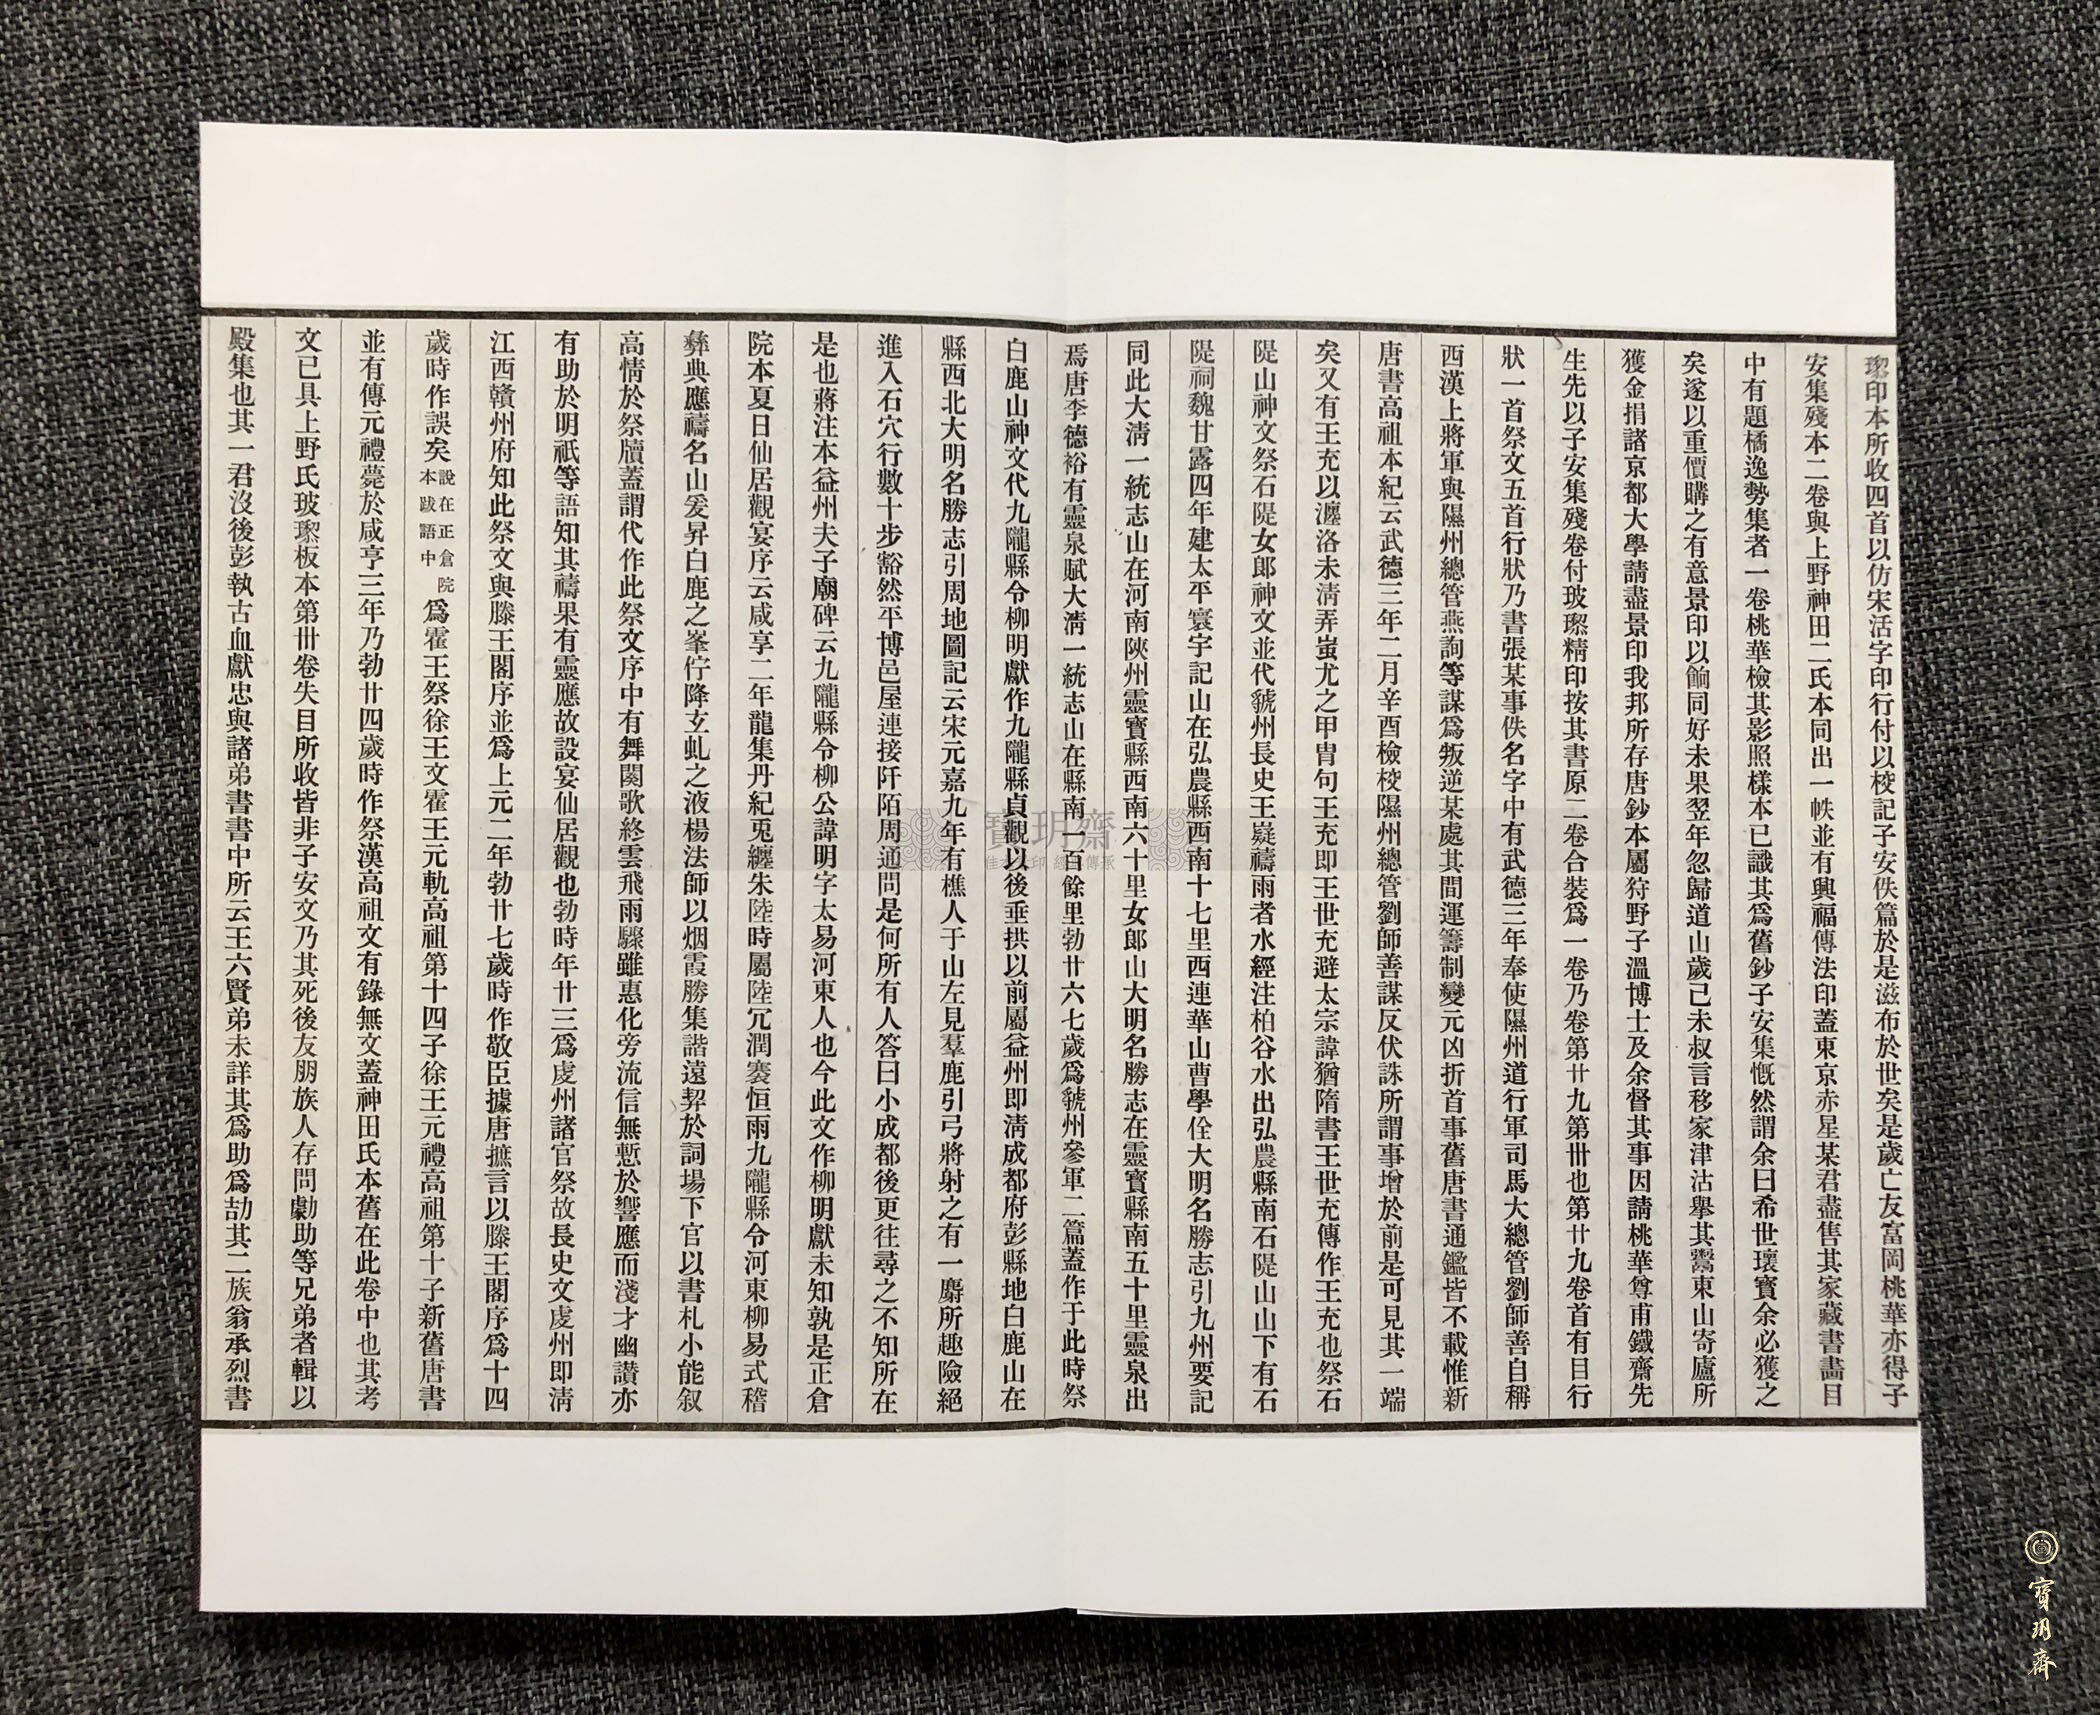 瓈印本所收四首以仿宋活字印行付以校記子安佚篇於是滋布於世矣是歲亡友富岡桃華亦得子
安集殘本二卷與上野神田二氏本同出一帙並有興福傳法印蓋東京赤星某君盡售其家藏書畵目
中有題橘逸勢集者一卷桃華檢其影照樣本已識其爲舊鈔子安集慨然謂余曰希世瓌寶余必獲之
矣遂以重價購之有意景印以餉同好未果翌年忽歸道山歲己未叔言移家津沽擧其鬻東山寄廬所
獲金捐諸京都大學請盡景印我邦所存唐鈔本屬狩野子溫博士及余督其事因請桃華尊甫鐵齋先
生先以子安集殘卷付玻瓈精印按其書原二卷合裝爲一卷乃卷第廿九第卅也第廿九卷首有目行
狀一首祭文五首行狀乃書張某事佚名字中有武德三年奉使隰州道行軍司馬大總管劉師善自稱
西漢上將軍與隰州總管燕詢等謀爲叛逆某處其間運籌制變元凶折首事舊唐書通鑑皆不載惟新
唐書高祖本紀云武德三年二月辛酉檢校隰州總管劉師善謀反伏誅所謂事增於前是可見其一端
矣又有王充以瀍洛未淸弄蚩尤之甲冑句王充即王世充避太宗諱猶隋書王世充傳作王充也祭石
隄山神文祭石隄女郎神文並代虢州長史王嶷禱雨者水經注柏谷水出弘農縣南石隄山山下有石
隄祠魏甘露四年建太平寰宇記山在弘農縣西南十七里西連華山曹學佺大明名勝志引九州要記
同此大淸一統志山在河南陝州靈寶縣西南六十里女郎山大明名勝志在靈寶縣南五十里靈泉出
焉唐李德裕有靈泉賦大淸一統志山在縣南一百餘里勃廿六七歲爲虢州參軍二篇蓋作于此時祭
白鹿山神文代九隴縣令柳明獻作九隴縣貞觀以後垂拱以前屬益州即淸成都府彭縣地白鹿山在
縣西北大明名勝志引周地圖記云宋元嘉九年有樵人于山左見羣鹿引弓將射之有一麝所趣險絕
進入石穴行數十步豁然平博邑屋連接阡陌周通問是何所有人答曰小成都後更往尋之不知所在
是也蔣注本益州夫子廟碑云九隴縣令柳公諱明字太易河東人也今此文作柳明獻未知孰是正倉
院本夏日仙居觀宴序云咸享二年龍集丹紀兎纏朱陸時屬陸冗潤褰恒雨九隴縣令河東柳易式稽
彝典應禱名山爰昇白鹿之峯佇降玄虬之液楊法師以烟霞勝集諧遠契於詞場下官以書札小能叙
高情於祭牘蓋謂代作此祭文序中有舞闋歌終雲飛雨驟雖惠化旁流信無慙於響應而淺才幽讚亦
有助於明祇等語知其禱果有靈應故設宴仙居觀也勃時年廿三爲虔州諸官祭故長史文虔州即淸
江西贛州府知此祭文與滕王閣序並爲上元二年勃廿七歲時作敬臣據唐摭言以滕王閣序爲十四
歲時作誤矣說在正倉院本跋語中爲霍王祭徐王文霍王元軌高祖第十四子徐王元禮高祖第十子新舊唐書
並有傳元禮薨於咸亨三年乃勃廿四歲時作祭漢高祖文有錄無文蓋神田氏本舊在此卷中也其考
文已具上野氏玻瓈板本第卅卷失目所收皆非子安文乃其死後友朋族人存問勮助等兄弟者輯以
殿集也其一君沒後彭執古血獻忠與諸弟書書中所云王六賢弟未詳其爲助爲劼其二族翁承烈書
寶玥齋
寶玥齋